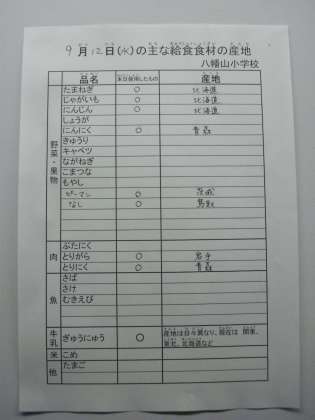 9月12日(水)の主な給食食材の産地
八幡山小学校
品名 本日使用したもの 産地
野菜・果物
たまねぎ ○ 北海道
じゃがいも ○ 北海道
にんじん ○ 北海道
しょうが
にんにく ○ 青森
きゅうり
キャベツ
ながねぎ
こまつな
もやし
ピーマン ○ 茨城
なし ○ 鳥取
肉
ぶたにく
とりがら ○ 岩手
とりにく ○ 青森
魚
さば
さけ
むきえび
牛乳 ぎゅうにゅう ○ 産地は日々異なり、現在は 関東、
東北、北海道など
米 こめ
他 たまご